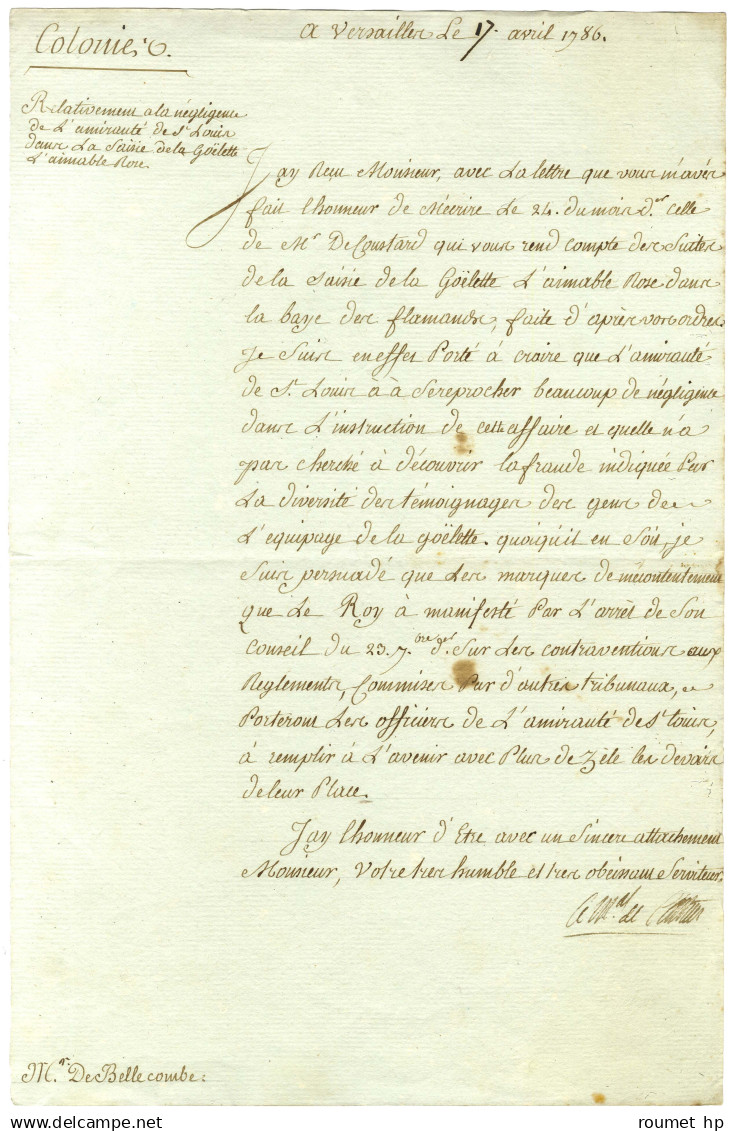 Colonies.
A Versailles Le 17. avril 1786.
Relativement a la négligence
de L'amirauté de St Louis
dans La Saisie de la Goëlette
L'aimable Rose.
J'ay Reçu Monsieur, avec La lettre que vous m'avés
fait l'honneur de M'écrire Le 24. du mois der celle
de Mr De Coustard qui vous rend compte des Suites
de la saisie de la Goëlette L'aimable Rose dans
la baye des flamands, faite d'après vos ordres.
Je Suis en effet Porté à croire que L'amirauté
de St Louis à à Se reprocher beaucoup de négligence
dans L'instruction de cette affaire et quelle n'a
pas cherché à découvrir la fraude indiquée Par
La diversité des témoignages des gens de
L'équipage de la goëlette. quoiqu'il en Soit, je
Suis persuadé que Les marques de mécontentement
que Le Roy à manifesté Par L'arrêt de Son
Conseil du 23. 7.bre der Sur Les contraventions aux
Reglements, Commises Par d'autres tribunaux,
Porteront Les officiers de L'amirauté de St Louis,
à remplir à L'avenir avec Plus de zèle les devoirs
de leur Place.
J'ay l'honneur d'Etre avec un Sincere attachement
Monsieur, Votre tres humble et tres obéissant Serviteur.
Le Mal de Castries
Mr. De Bellecombe.
www.delcampe.net
roumet hp